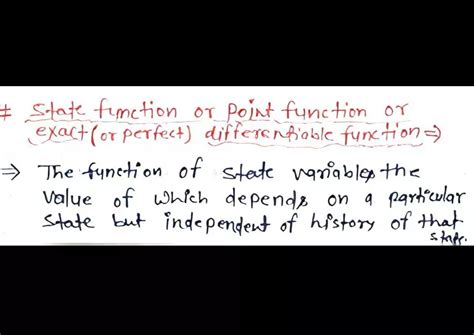 # State function or Point function or
exact (or perfect) differentiable function ⇒
⇒ The function of state variables the
value of which depends on a particular
state but independent of history of that
state.